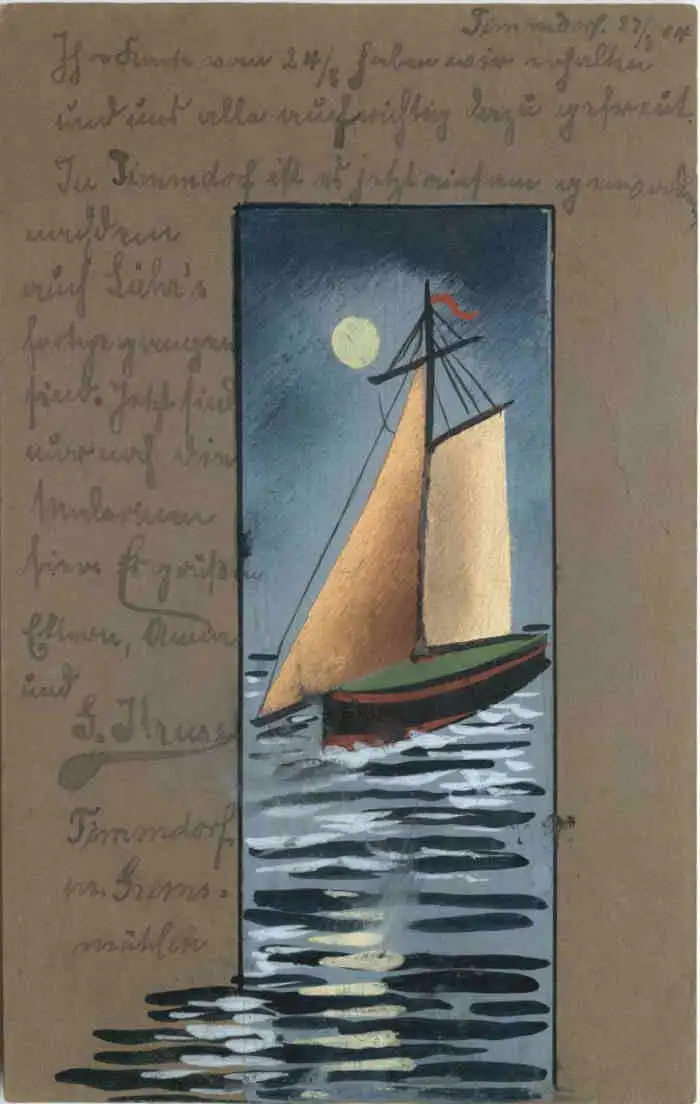 Timmdorf. 27/8 04
Ihre Karte vom 24/8 haben wir erhalten
und uns alle aufrichtig dazu gefreut.
In Timmdorf ist es jetzt einsam geworden
nachdem
auch Lühr's
fortgegangen
sind. Jetzt sind
nur noch die
Malerinnen
hier. Es grüßen
Eltern, Anna
und
G. Kruse
Timmdorf
pr. Grems-
mühlen